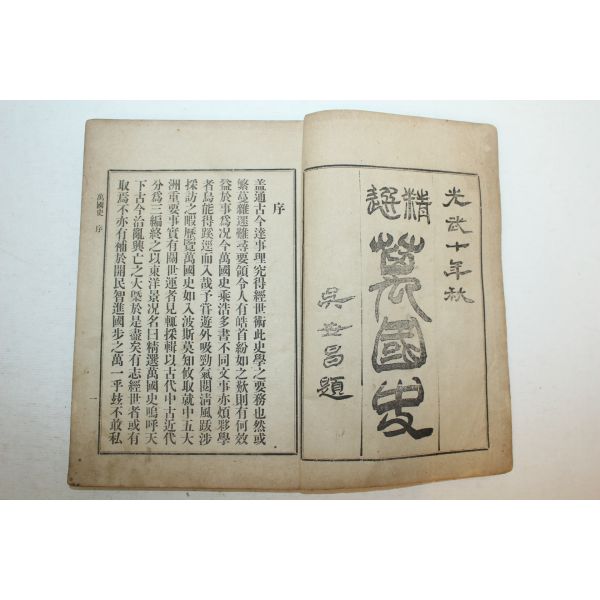 光武十年秋
精選
萬國史
吳世昌題
序
盖通古今達事理究得經世術此史學之要務也然或
繁蔓雜遝難尋要領令人有皓首紛如之歎則有何效
益於事爲况今萬國史乘浩多書不同文事亦煩夥學
者烏能得蹊逕而入哉予甞遊外吸勁氣閱淸風跋涉
採訪之暇歷覽萬國史如入波斯莫知攸取就中五大
洲重要事實有關世運者見輒採輯以古代中古近代
分爲三編終之以東洋景况名曰精選萬國史嗚呼天
下古今治亂興亡之大槩於是盡矣有志經世者或有
取焉不亦有補於開民智進國步之萬一乎玆不敢私
萬國史 序